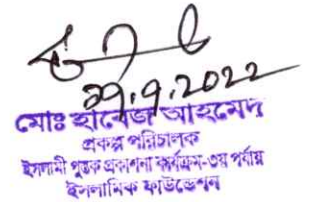 ২৭.৭.2022
মোঃ হাবেজ আহমেদ
প্রকল্প পরিচালক
ইসলামী পুস্তক প্রকাশনা কার্যক্রম-৩য় পর্যায়
ইসলামিক ফাউন্ডেশন